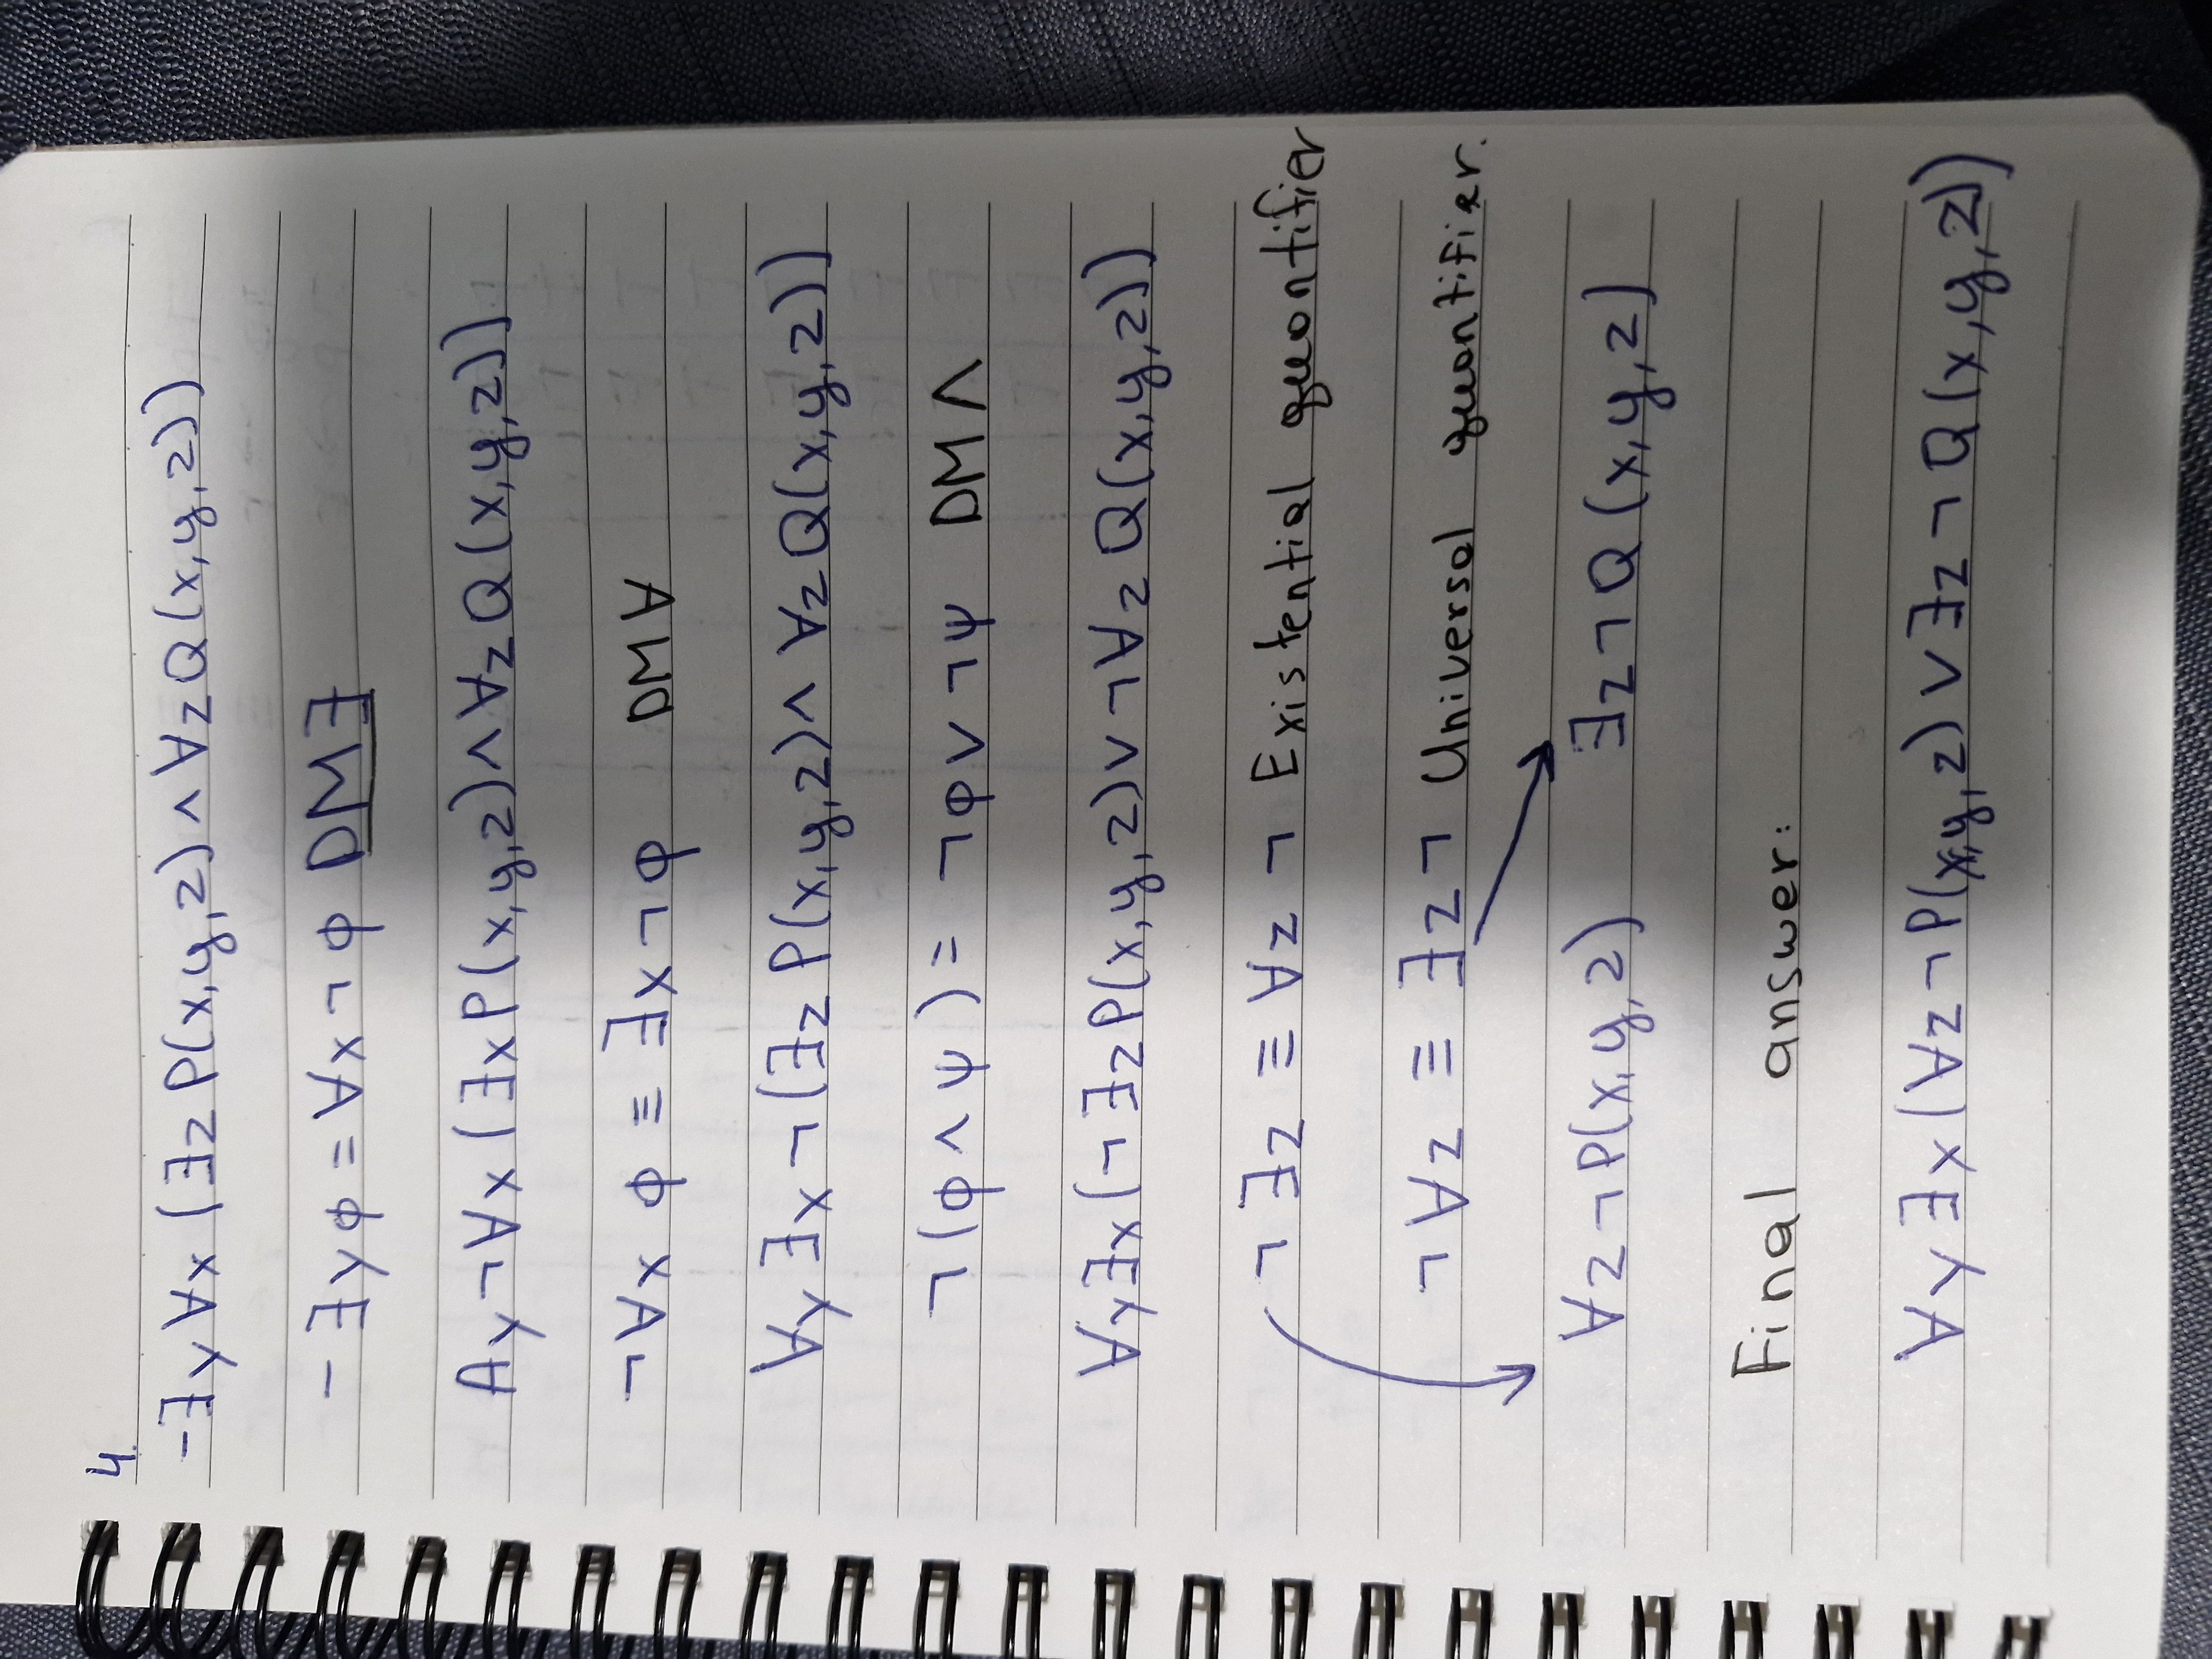 4.
-∃y∀x (∃z P(x,y,z) ∧ ∀z Q(x,y,z))
- ∃y ϕ = ∀x ¬ ϕ DM∃
Ay ¬∀x (∃x P(x,y,z) ∧ ∀z Q(x,y,z))
¬∀x ϕ ≡ ∃x ¬ ϕ DM ∀
∀y ∃x ¬(∃z P(x,y,z) ∧ ∀z Q(x,y,z))
¬(ϕ ∧ ψ) = ¬ϕ ∨ ¬ψ DM ∧
∀y∃x (¬∃z P(x,y,z) ∨ ¬∀z Q(x,y,z))
¬ ∃z ≡ ∀z ¬ Existential quantifier
¬ ∀z ≡ ∃z ¬ Universal quantifier.
∀z ¬P(x,y,z) ∃z ¬Q (x,y,z)
Final answer:
∀y ∃x (∀z ¬P(x,y,z) ∨ ∃z ¬ Q (x,y,z))